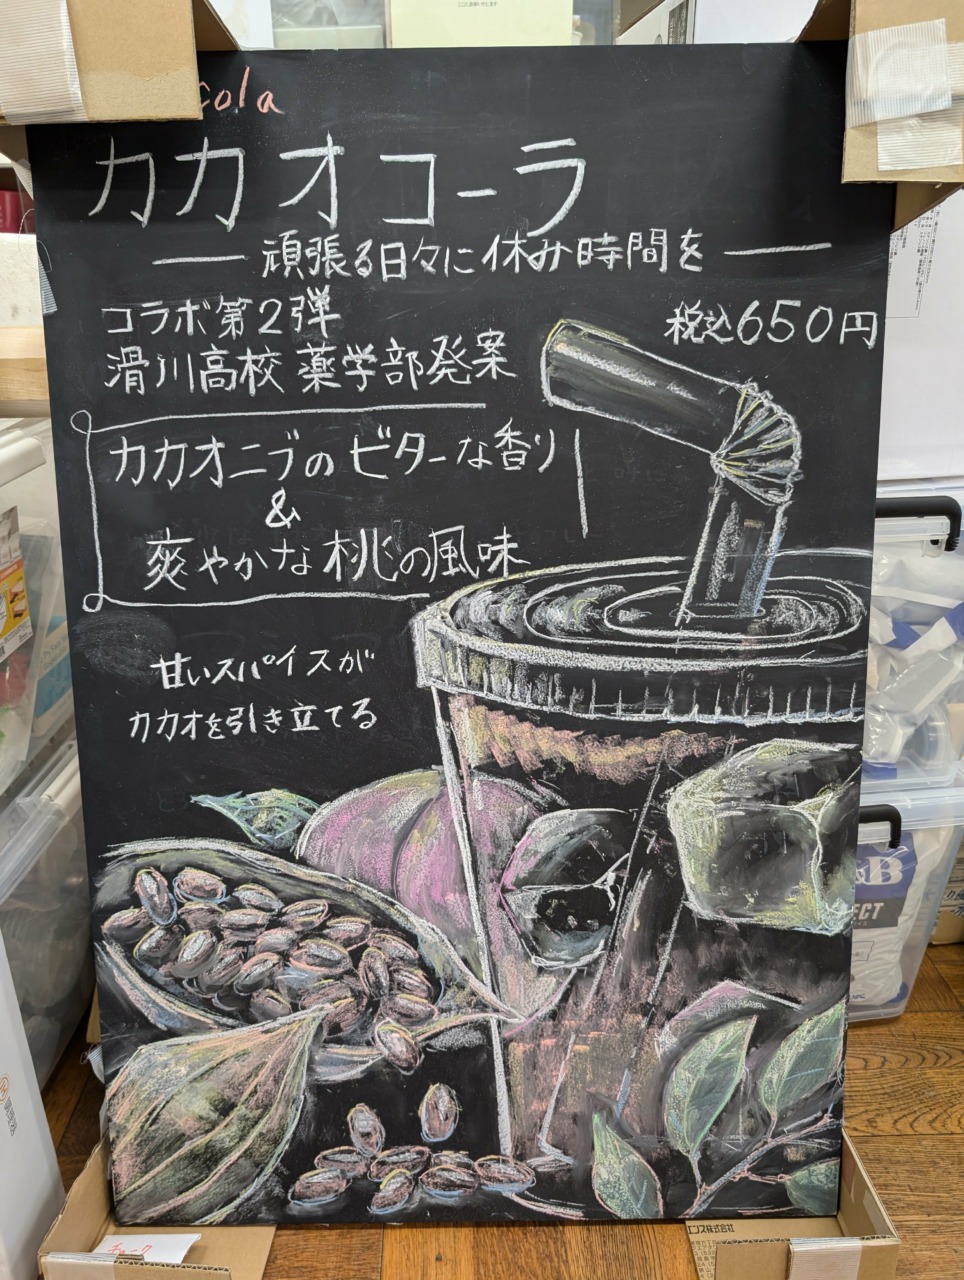 cola
カカオコーラ
頑張る日々に休み時間を
コラボ第2弾
滑川高校 薬学部発案
税込650円
カカオニブのビターな香り
&
爽やかな桃の風味
甘いスパイスが
カカオを引き立てる
チョーク